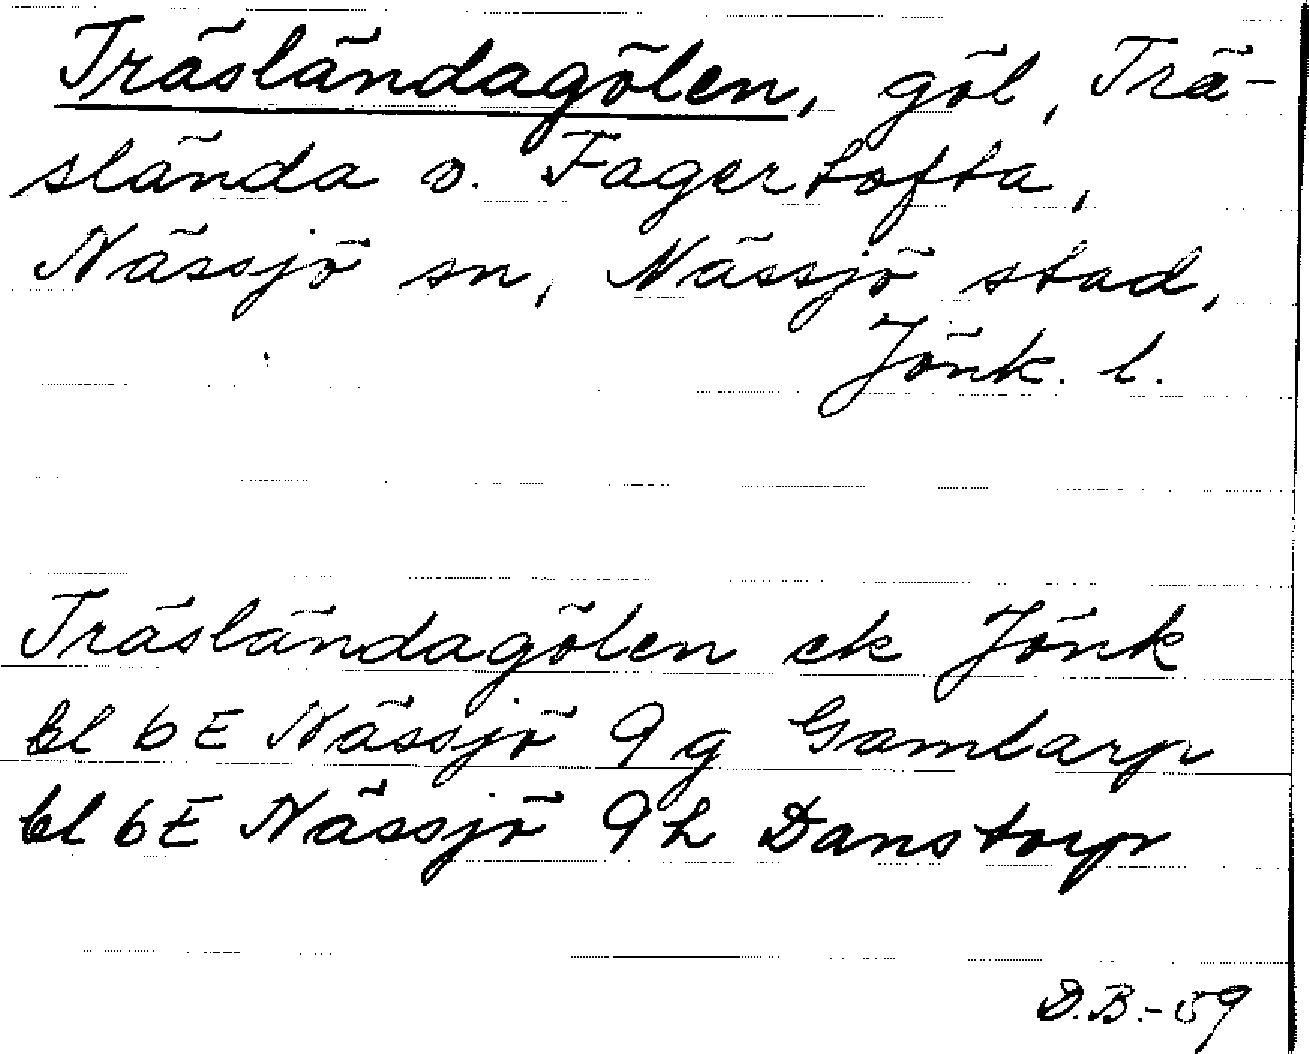 Träsländagölen, göl, Trä-
slända o. Fagertofta,
Nässjö sn, Nässjö stad,
Jönk. l.
Träsländagölen ek Jönk
bl 6E Nässjö 9g Gamlarp
bl 6E Nässjö 9h Danstorp
D.B.-59